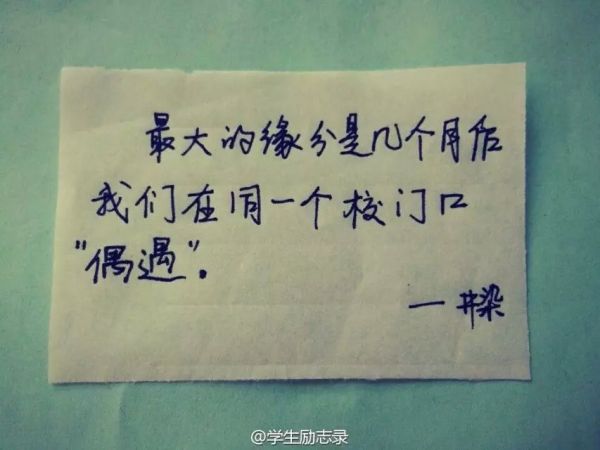 最大的缘分是几个月后
我们在同一个校门口
"偶遇"。
— 井染
@学生励志录